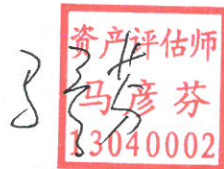 资产评估师
马彦芬
13040002
马彦芬